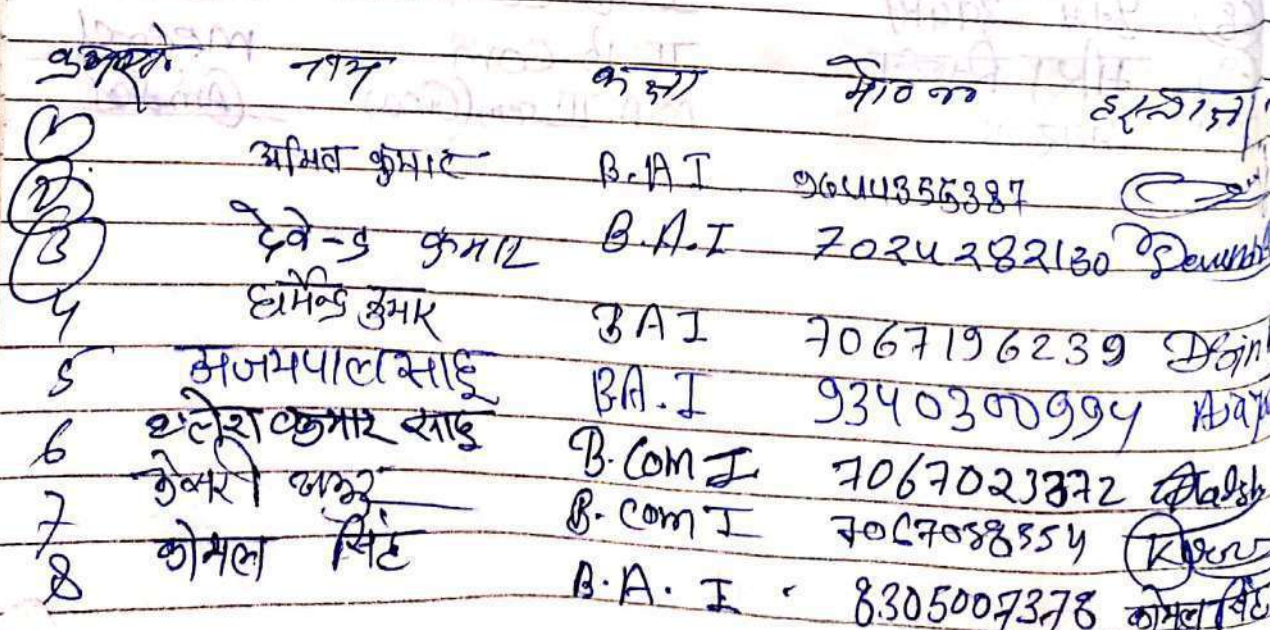 नाम कक्षा मो० न० हस्ताक्ष
1
2 अमित कुमार B.A I 9644355387
3 देवेन्द्र कुमार B.A.I 7024282130
4 धर्मेन्द्र कुमार BA I 7067196239
5 अजयपाल साहू BA.I 9340300994 Ajay
6 कुमार साहू B.COM I 7067023372
7 केसरी B.COM I 7067038354
8 कोमल सिंह B.A. I 8305007378 कोमल सिंह